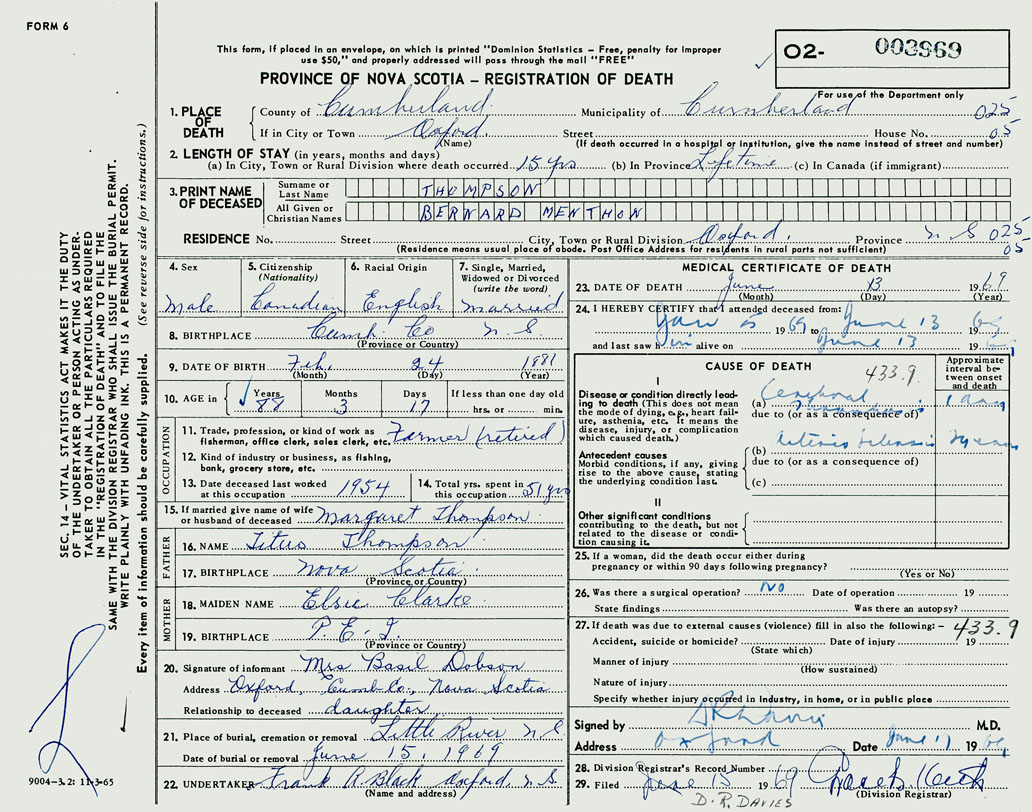 FORM 6
This form, if placed in an envelope, on which is printed "Dominion Statistics – Free, penalty for improper
use $50," and properly addressed will pass through the mail "FREE"
PROVINCE OF NOVA SCOTIA – REGISTRATION OF DEATH
O2- 003969
For use of the Department only
SEC. 14 – VITAL STATISTICS ACT MAKES IT THE DUTY
OF THE UNDERTAKER OR PERSON ACTING AS UNDER-
TAKER TO OBTAIN ALL THE PARTICULARS REQUIRED
IN THE "REGISTRATION OF DEATH" AND TO FILE THE
SAME WITH THE DIVISION REGISTRAR WHO SHALL ISSUE THE BURIAL PERMIT.
WRITE PLAINLY WITH UNFADING INK. THIS IS A PERMANENT RECORD.
Every item of information should be carefully supplied. (See reverse side for instructions.)
1. PLACE OF DEATH
County of Cumberland Municipality of Cumberland 025
If in City or Town Oxford Street House No. 05
(Name) (If death occurred in a hospital or institution, give the name instead of street and number)
2. LENGTH OF STAY (in years, months and days)
(a) In City, Town or Rural Division where death occurred 15 yrs (b) In Province Lifetime (c) In Canada (if immigrant)
3. PRINT NAME OF DECEASED
Surname or Last Name THOMPSON
All Given or Christian Names BERNARD MENTHON
RESIDENCE No. Street City, Town or Rural Division Oxford. Province N S 025
(Residence means usual place of abode. Post Office Address for residents in rural parts not sufficient) 05
4. Sex Male
5. Citizenship (Nationality) Canadian
6. Racial Origin English
7. Single, Married, Widowed or Divorced (write the word) Married
8. BIRTHPLACE Cumb. Co N. S
(Province or Country)
9. DATE OF BIRTH Feb. 24 1881
(Month) (Day) (Year)
10. AGE in Years 88 Months 3 Days 17 If less than one day old hrs. or min.
OCCUPATION
11. Trade, profession, or kind of work as fisherman, office clerk, sales clerk, etc. Farmer (retired)
12. Kind of industry or business, as fishing, bank, grocery store, etc.
13. Date deceased last worked at this occupation 1954
14. Total yrs. spent in this occupation 51 yrs
15. If married give name of wife or husband of deceased Margaret Thompson
FATHER
16. NAME Titus Thompson
17. BIRTHPLACE Nova Scotia
(Province or Country)
MOTHER
18. MAIDEN NAME Elsie Clarke
19. BIRTHPLACE P. E. I.
(Province or Country)
20. Signature of informant Mrs Basil Dobson
Address Oxford, Cumb Co., Nova Scotia
Relationship to deceased daughter
21. Place of burial, cremation or removal Little River N. S
Date of burial or removal June 15, 1969
22. UNDERTAKER Frank R. Black Oxford, N. S.
(Name and address)
9004-3.2: 11-3-65
MEDICAL CERTIFICATE OF DEATH
23. DATE OF DEATH June 13 1969
(Month) (Day) (Year)
24. I HEREBY CERTIFY that I attended deceased from:
1969 to June 13 19 69
and last saw him alive on June 13 19
CAUSE OF DEATH 433.9 Approximate interval between onset and death
I
Disease or condition directly leading to death (This does not mean the mode of dying, e.g., heart failure, asthenia, etc. It means the disease, injury, or complication which caused death.)
(a) Cerebral 1 day
due to (or as a consequence of)
Antecedent causes
Morbid conditions, if any, giving rise to the above cause, stating the underlying condition last.
(b)
due to (or as a consequence of)
(c)
II
Other significant conditions contributing to the death, but not related to the disease or condition causing it.
25. If a woman, did the death occur either during pregnancy or within 90 days following pregnancy?
(Yes or No)
26. Was there a surgical operation? NO Date of operation 19
State findings Was there an autopsy?
27. If death was due to external causes (violence) fill in also the following: – 433.9
Accident, suicide or homicide? Date of injury 19
(State which)
Manner of injury
(How sustained)
Nature of injury
Specify whether injury occurred in industry, in home, or in public place
Signed by M.D.
Address Oxford Date June 19 69
28. Division Registrar's Record Number
29. Filed June 15 1969
(Division Registrar)
D. R. DAVIES